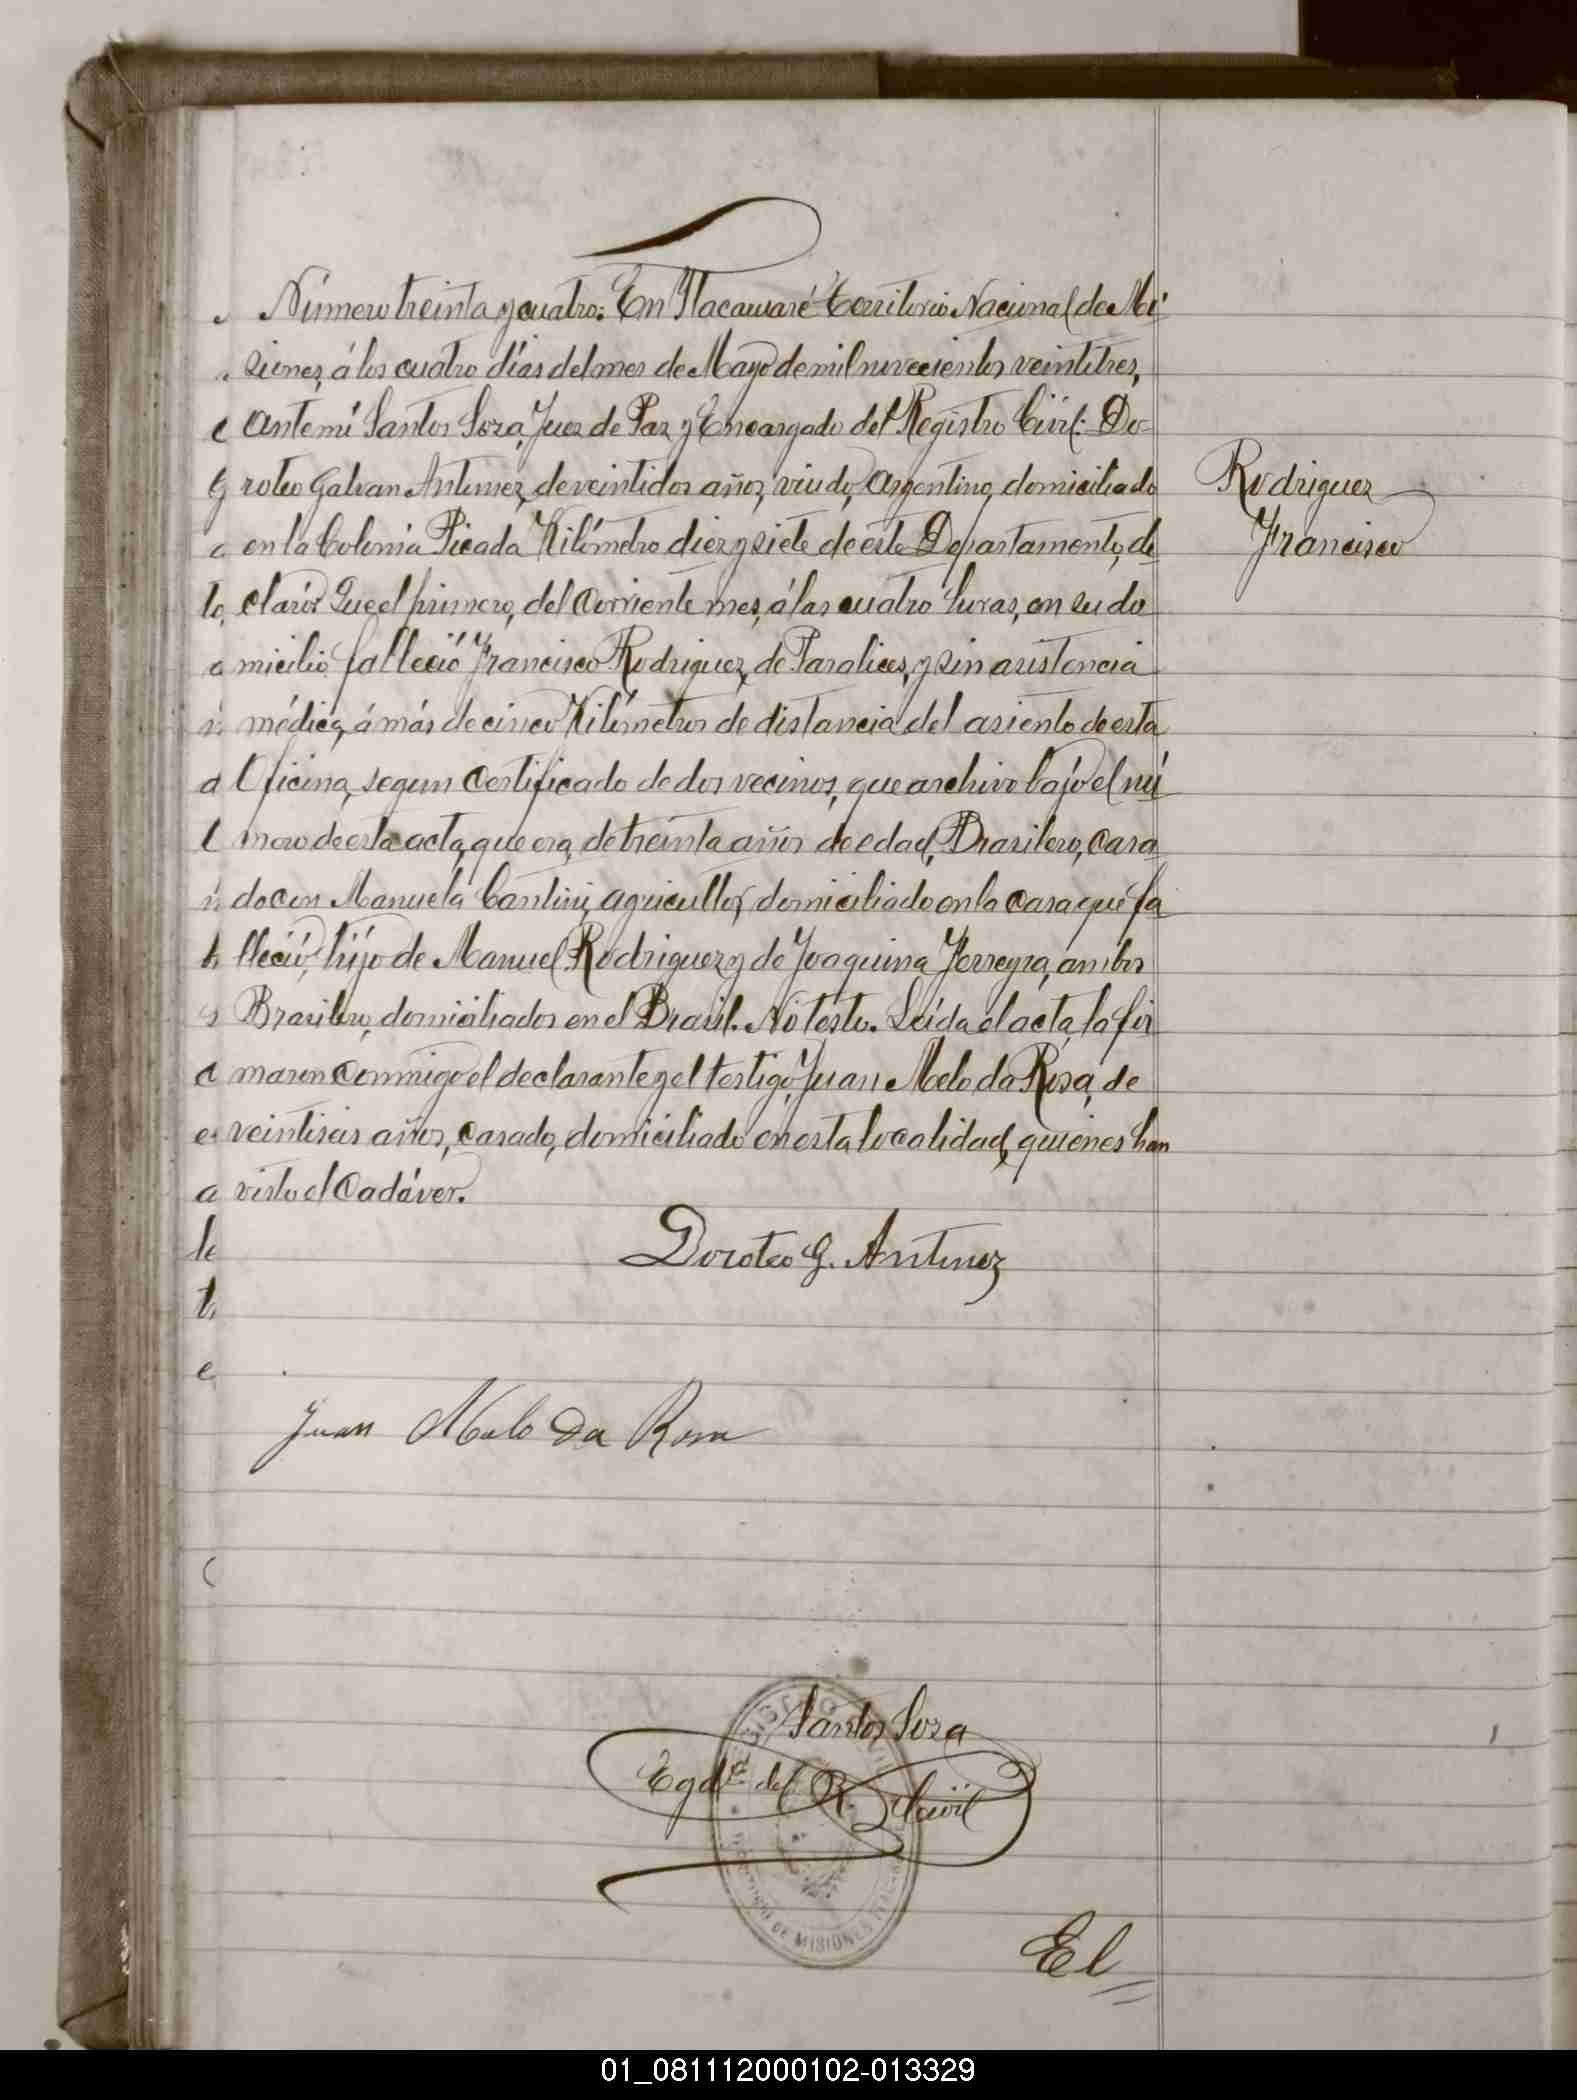 Número treinta y cuatro: En Itacaruaré Territorio Nacional de Mi-
siones, á los cuatro días del mes de Mayo de mil novecientos veintitres,
ante mí Santos Sosa, Juez de Paz y Encargado del Registro Civil: Do-
roteo Galvan Antunez, de veintidos años, viudo, Argentino, domiciliado
en la Colonia Picada Kilómetro diez y siete de este Departamento, de
claró: Que el primero, del corriente mes, á las cuatro horas, en su do
micilio falleció Francisco Rodriguez, de Paralices, y sin asistencia
médica, á más de cinco Kilómetros de distancia del asiento de esta
Oficina, segun certificado de dos vecinos, que archivo bajo el nú
mero de esta acta, que era, de treinta años de edad, Brasilero, casa
do con Manuela Cantini, agricultor, domiciliado en la casa que fa
lleció, hijo de Manuel Rodriguez y de Joaquina Ferreyra, ambos
Brasilero, domiciliados en el Brasil. No testo. Leída el acta, la fir
maron conmigo el declarante y el testigo, Juan Melo da Rosa, de
veintiseis años, casado, domiciliado en esta localidad, quienes han
visto el cadáver.
Rodriguez
Francisco
Doroteo G. Antunez
Juan Melo da Rosa
Santos Sosa
Egdo. del R. Civil
REGISTRO CIVIL
DE MISIONES
El
01_081112000102-013329